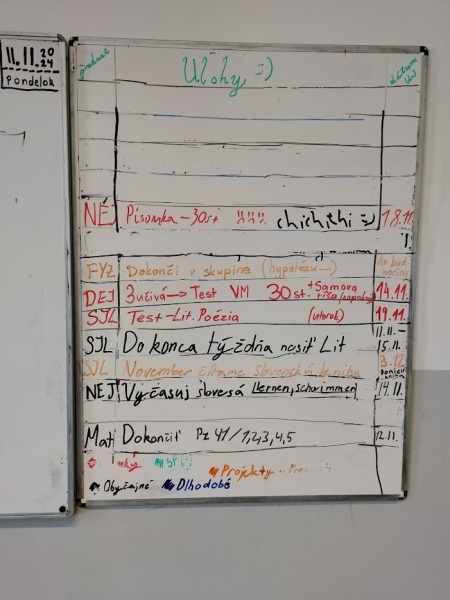 11.11. 2024
Pondelok
predmet
Úlohy =)
dátum
NEJ Písomka - 30st chichihi =) 18.11.
FYZ Dokonči v skupine (hypotézu....)
DEJ Zučivá → Test VM 30st. + Samova ríša (zápisky) 14.11.
SJL Test - Lit. Poézia (utorok) 19.11.
SJL Do konca týždňa nosiť Lit 11.11. - 15.11.
SJL November čítame slovenské knihy 3.12.
NEJ Vyčasuj slovesá (lernen, schwimmen) 14.11.
Mat Dokončiť Pz 41/1,2,3,4,5 12.11.
Projekty
Obyčajné Dlhodobé